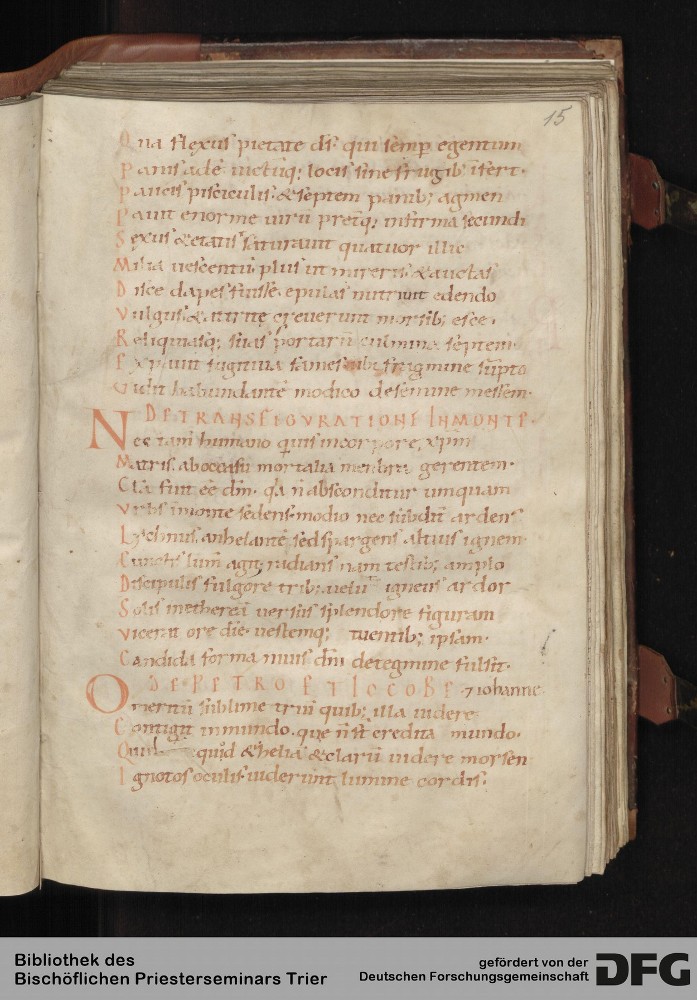 15
Qua flexus pietate ds̄ qui semp̄ egentum
Panis adē uictuq; locis sine frugib; īfert.
Paucis pisciculis & septem panib; agmen
Pauit enorme uirū pretq; infirma secundi
Sexus & etatis saturauit quatuor illic
Milia uescentū plus ut mireris & auctas
Disce dapes fuisse. epulas nutriunt edendo
Vulgus & attrite creuerunt morsib; esce.
Reliquiasq; suas portarū culmina septem.
Expauit fames fragmine sūpta
habundantē modico de semine messem.
DE TRANSFIGVRATIONE IN MONTE.
Nec tam̄ humano quis in corpore, xp̄m
Matris ab occasū mortalia membra gerentem.
Clā sint eē dm̄. qa n̄ absconditur umquam
Vrbs ī monte sedens. modio nec subdit̄ ardens
Lychnus anhelantē sed spargens altius ignem
Cunctis lum̄ agit, radians nam testib; amplo
Discipulis fulgore trib; uelut̄ igneus ardor
Solis in etherea versus splendore figuram
Vicerat ore die. uestemq; tuentib; ipsam.
Candida forma niuis dm̄ detegmine fulsit.
DE PETRO ET IACOBE 7 iohanne
O meritū sublime triū quib; illa uidere
Contigit in mundo. que n̄ st̄ credita mundo.
quid & heliā & clarū uidere morsen
Ignotos oculis uiderunt lumine cordis.
Bibliothek des
Bischöflichen Priesterseminars Trier
gefördert von der
Deutschen Forschungsgemeinschaft
DFG